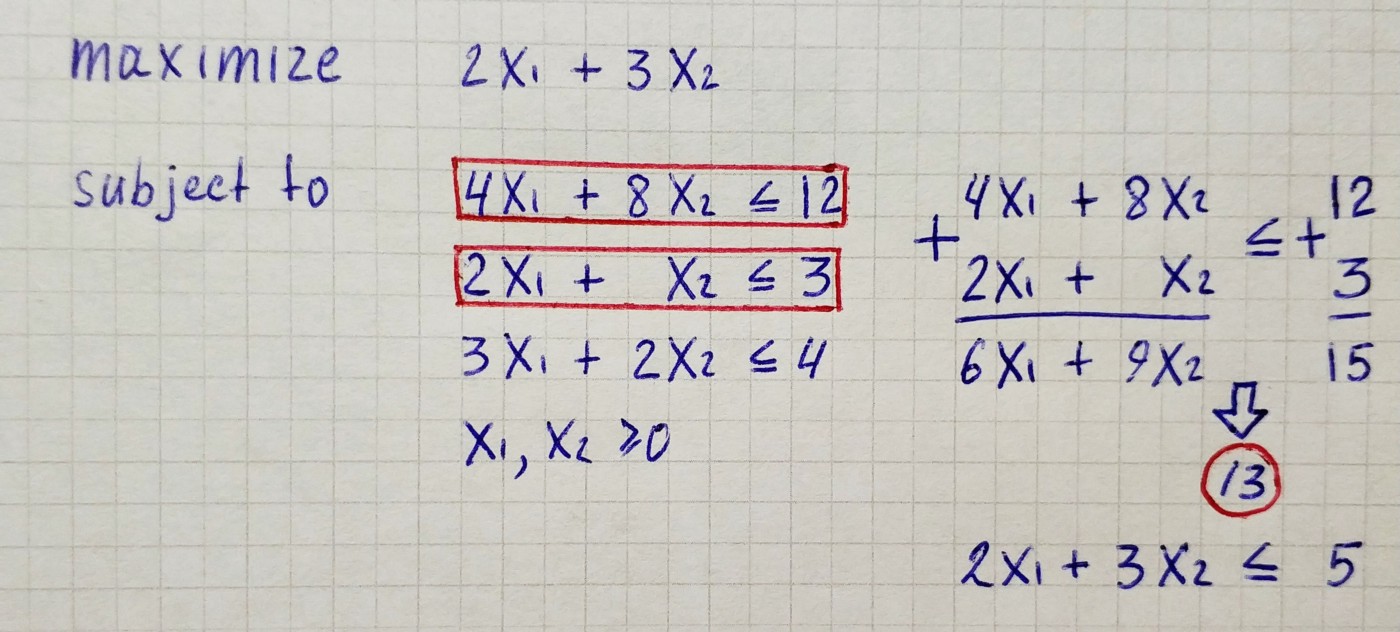 maximize 2X₁ + 3X₂
subject to 4X₁ + 8X₂ ≤ 12
2X₁ + X₂ ≤ 3
3X₁ + 2X₂ ≤ 4
X₁, X₂ ≥ 0
4X₁ + 8X₂ 12
+ ≤ +
2X₁ + X₂ 3
6X₁ + 9X₂ 15
⇓
13
2X₁ + 3X₂ ≤ 5